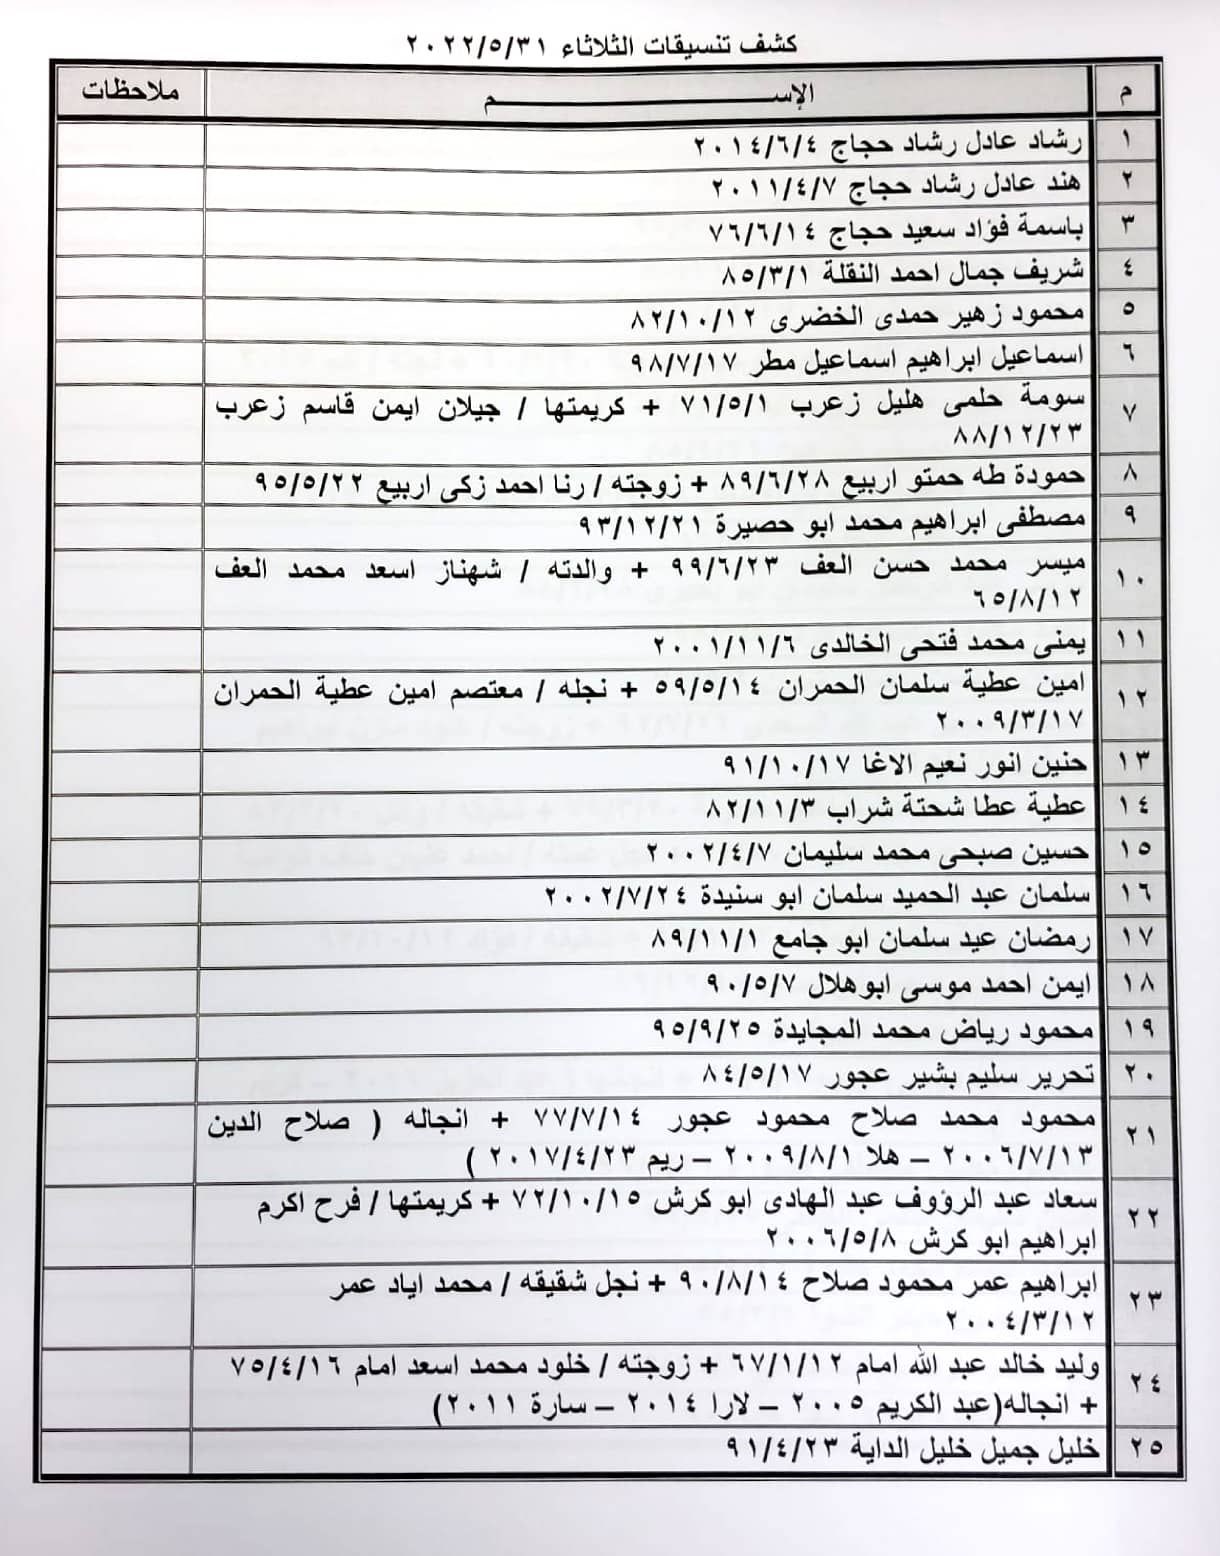 كشف تنسيقات الثلاثاء ٢٠٢٢/٥/٣١
م الإســـــــم ملاحظات
١ رشاد عادل رشاد حجاج ٢٠١٤/٦/٤
٢ هند عادل رشاد حجاج ٢٠١١/٤/٧
٣ باسمة فؤاد سعيد حجاج ٧٦/٦/١٤
٤ شريف جمال احمد النقلة ٨٥/٣/١
٥ محمود زهير حمدى الخضرى ٨٢/١٠/١٢
٦ اسماعيل ابراهيم اسماعيل مطر ٩٨/٧/١٧
٧ سومة حلمى هليل زعرب ٧١/٥/١ + كريمتها / جيلان ايمن قاسم زعرب
٨٨/١٢/٢٣
٨ حمودة طه حمتو اربيع ٨٩/٦/٢٨ + زوجته / رنا احمد زكى اربيع ٩٥/٥/٢٢
٩ مصطفى ابراهيم محمد ابو حصيرة ٩٣/١٢/٢١
١٠ ميسر محمد حسن العف ٩٩/٦/٢٣ + والدته / شهناز اسعد محمد العف
٦٥/٨/١٢
١١ يمنى محمد فتحى الخالدى ٢٠٠١/١١/٦
١٢ امين عطية سلمان الحمران ٥٩/٥/١٤ + نجله / معتصم امين عطية الحمران
٢٠٠٩/٣/١٧
١٣ حنين انور نعيم الاغا ٩١/١٠/١٧
١٤ عطية عطا شحتة شراب ٨٢/١١/٣
١٥ حسين صبحى محمد سليمان ٢٠٠٢/٤/٧
١٦ سلمان عبد الحميد سلمان ابو سنيدة ٢٠٠٢/٧/٢٤
١٧ رمضان عيد سلمان ابو جامع ٨٩/١١/١
١٨ ايمن احمد موسى ابوهلال ٩٠/٥/٧
١٩ محمود رياض محمد المجايدة ٩٥/٩/٢٥
٢٠ تحرير سليم بشير عجور ٨٤/٥/١٧
٢١ محمود محمد صلاح محمود عجور ٧٧/٧/١٤ + انجاله ( صلاح الدين
٢٠٠٦/٧/١٣ – هلا ٢٠٠٩/٨/١ – ريم ٢٠١٧/٤/٢٣ )
٢٢ سعاد عبد الرؤوف عبد الهادى ابو كرش ٧٢/١٠/١٥ + كريمتها / فرح اكرم
ابراهيم ابو كرش ٢٠٠٦/٥/٨
٢٣ ابراهيم عمر محمود صلاح ٩٠/٨/١٤ + نجل شقيقه / محمد اياد عمر
٢٠٠٤/٣/١٢
٢٤ وليد خالد عبد الله امام ٦٧/١/١٢ + زوجته / خلود محمد اسعد امام ٧٥/٤/١٦
+ انجاله(عبد الكريم ٢٠٠٥ – لارا ٢٠١٤ – سارة ٢٠١١)
٢٥ خليل جميل خليل الداية ٩١/٤/٢٣